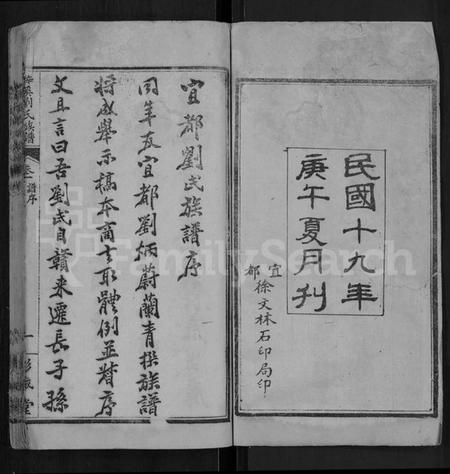 民國十九年
庚午夏月刊
宜都徐文林石印局印
宜都劉氏族譜序
同年友宜都劉炳蔚蘭青撰族譜
將成舉示稿本商之取體例並督序
文且言曰吾劉氏自贛來遷長子孫
劉氏族譜
卷一 譜序
一
彭城堂
FamilySearch